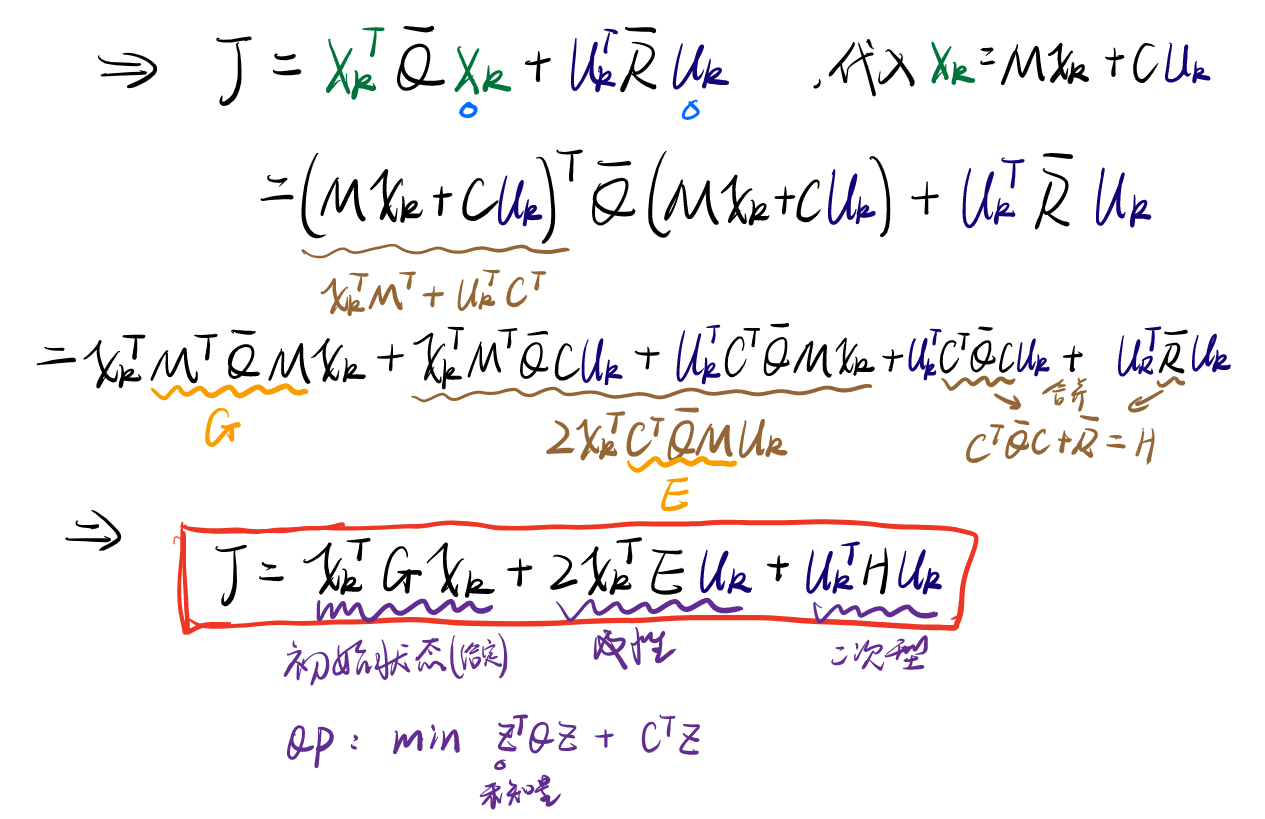 ⇒ J = X_k^T Q̄ X_k + U_k^T R̄ U_k ,代入 X_k = Mx_k + CU_k
= (Mx_k + CU_k)^T Q̄ (Mx_k + CU_k) + U_k^T R̄ U_k
x_k^T M^T + U_k^T C^T
= x_k^T M^T Q̄ M x_k + x_k^T M^T Q̄ C U_k + U_k^T C^T Q̄ M x_k + U_k^T C^T Q̄ C U_k + U_k^T R̄ U_k
合并
G 2x_k^T C^T Q̄ M U_k C^T Q̄ C + R̄ = H
E
⇒ J = x_k^T G x_k + 2x_k^T E U_k + U_k^T H U_k
初始状态(给定) 线性 二次型
QP: min Z^T Q Z + C^T Z
未知量